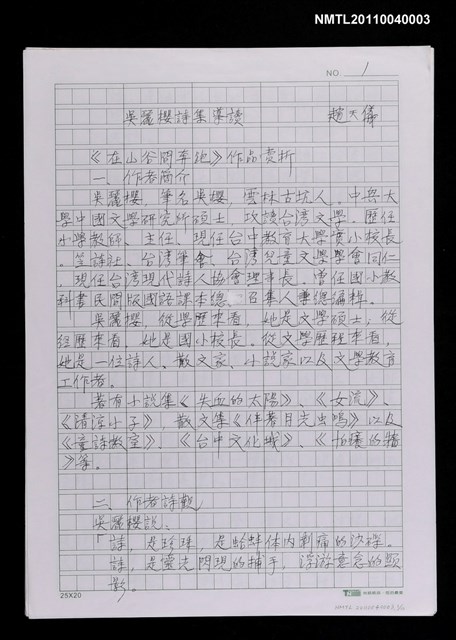 NMTL20110040003
NO. 1
吳麗櫻詩集導讀 趙天儀
《在山谷間奔跑》作品賞析
一、作者簡介
吳麗櫻，筆名吳櫻，雲林古坑人。中興大
學中國文學研究所碩士，攻讀台灣文學。歷任
小學教師、主任、現任台中教育大學實小校長。
笠詩社、台灣筆會、台灣兒童文學學會同仁
，現任台灣現代詩人協會理事長。曾任國小教
科書民間版國語課本總召集人兼總編輯。
吳麗櫻，從學歷來看，她是文學碩士；從
經歷來看，她是國小校長。從文學歷程來看，
她是一位詩人、散文家、小說家以及文學教育
工作者。
著有小說集《失血的太陽》、《女流》、
《清溶小子》，散文集《伴著月光虫鳴》以及
《童詩教室》、《台中文化城》、《拍瓊的牆
》等。
二、作者詩觀
吳麗櫻說：
「詩，是珍珠，是蛤蚌体內刺痛的沙粿。
詩，是靈光閃現的捕手，浮游意念的顯
影。
25X20
NMTL20110040003